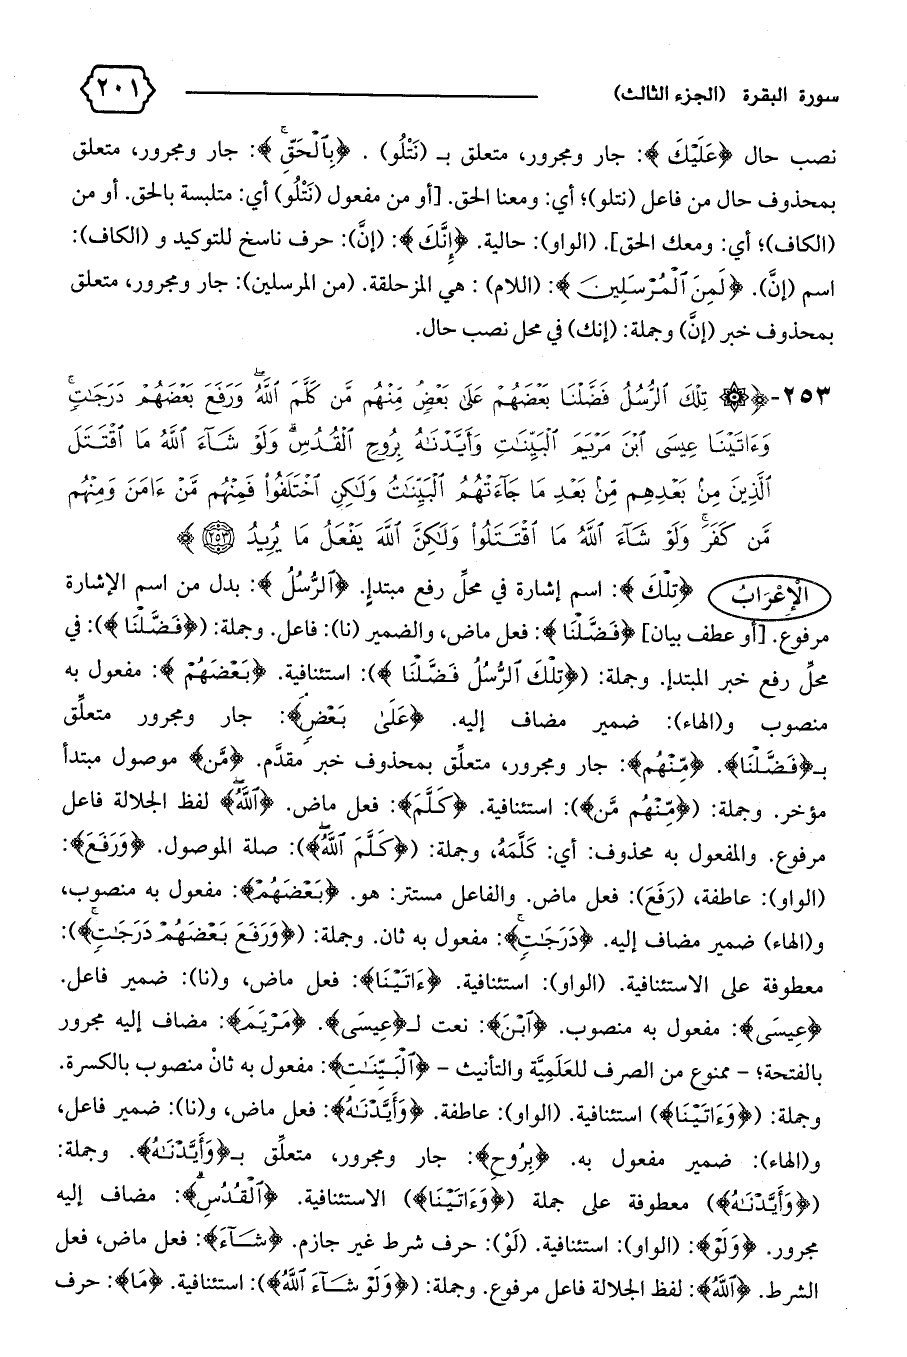 سورة البقرة (الجزء الثالث) ٢٠١
نصب حال ﴿عَلَيْكَ﴾: جار ومجرور، متعلق بـ (نَتْلُو) . ﴿بِٱلْحَقِّۚ﴾: جار ومجرور، متعلق
بمحذوف حال من فاعل (نتلو)؛ أي: ومعنا الحق. [أو من مفعول (نَتْلُو) أي: متلبسة بالحق. أو من
(الكاف)؛ أي: ومعك الحق]. (الواو): حالية. ﴿إِنَّكَ﴾: (إنَّ): حرف ناسخ للتوكيد و (الكاف):
اسم (إنَّ). ﴿لَمِنَ ٱلْمُرْسَلِينَ﴾: (اللام) : هي المزحلقة. (من المرسلين): جار ومجرور، متعلق
بمحذوف خبر (إنَّ) وجملة: (إنك) في محل نصب حال.
٢٥٣-﴿۞ تِلْكَ ٱلرُّسُلُ فَضَّلْنَا بَعْضَهُمْ عَلَىٰ بَعْضٍۘ مِّنْهُم مَّن كَلَّمَ ٱللَّهُۖ وَرَفَعَ بَعْضَهُمْ دَرَجَٰتٍۚ
وَءَاتَيْنَا عِيسَى ٱبْنَ مَرْيَمَ ٱلْبَيِّنَٰتِ وَأَيَّدْنَٰهُ بِرُوحِ ٱلْقُدُسِۗ وَلَوْ شَآءَ ٱللَّهُ مَا ٱقْتَتَلَ
ٱلَّذِينَ مِنۢ بَعْدِهِم مِّنۢ بَعْدِ مَا جَآءَتْهُمُ ٱلْبَيِّنَٰتُ وَلَٰكِنِ ٱخْتَلَفُوا۟ فَمِنْهُم مَّنْ ءَامَنَ وَمِنْهُم
مَّن كَفَرَۚ وَلَوْ شَآءَ ٱللَّهُ مَا ٱقْتَتَلُوا۟ وَلَٰكِنَّ ٱللَّهَ يَفْعَلُ مَا يُرِيدُ ۝٢٥٣ ﴾
الْإِعْرَابُ ﴿تِلْكَ﴾: اسم إشارة في محلِّ رفع مبتدإ. ﴿ٱلرُّسُلُ﴾: بدل من اسم الإشارة
مرفوع. [أو عطف بيان] ﴿فَضَّلْنَا﴾: فعل ماض، والضمير (نا): فاعل. وجملة: (﴿فَضَّلْنَا﴾): في
محلِّ رفع خبر المبتدإ. وجملة: (﴿تِلْكَ ٱلرُّسُلُ فَضَّلْنَا﴾): استئنافية. ﴿بَعْضَهُمْ﴾: مفعول به
منصوب و(الهاء): ضمير مضاف إليه. ﴿عَلَىٰ بَعْضٍ﴾: جار ومجرور متعلِّق
بـ﴿فَضَّلْنَا﴾. ﴿مِّنْهُم﴾: جار ومجرور، متعلِّق بمحذوف خبر مقدَّم. ﴿مَّن﴾ موصول مبتدأ
مؤخر. وجملة: (﴿مِّنْهُم مَّن﴾): استئنافية. ﴿كَلَّمَ﴾: فعل ماض. ﴿ٱللَّهُۖ﴾ لفظ الجلالة فاعل
مرفوع. والمفعول به محذوف: أي: كَلَّمَهُ، وجملة: (﴿كَلَّمَ ٱللَّهُۖ﴾): صلة الموصول. ﴿وَرَفَعَ﴾:
(الواو): عاطفة، (رَفَعَ): فعل ماض. والفاعل مستتر: هو. ﴿بَعْضَهُمْ﴾: مفعول به منصوب،
و(الهاء) ضمير مضاف إليه. ﴿دَرَجَٰتٍۚ﴾: مفعول به ثان. وجملة: (﴿وَرَفَعَ بَعْضَهُمْ دَرَجَٰتٍۚ﴾):
معطوفة على الاستئنافية. (الواو): استئنافية. ﴿ءَاتَيْنَا﴾: فعل ماض، و(نا): ضمير فاعل.
﴿عِيسَى﴾: مفعول به منصوب. ﴿ٱبْنَ﴾: نعت لـ﴿عِيسَى﴾. ﴿مَرْيَمَ﴾: مضاف إليه مجرور
بالفتحة؛ - ممنوع من الصرف للعَلَمِيَّة والتأنيث - ﴿ٱلْبَيِّنَٰتِ﴾: مفعول به ثانْ منصوب بالكسرة.
وجملة: (﴿وَءَاتَيْنَا﴾) استئنافية. (الواو): عاطفة. ﴿وَأَيَّدْنَٰهُ﴾: فعل ماض، و(نا): ضمير فاعل،
و(الهاء): ضمير مفعول به. ﴿بِرُوحِ﴾: جار ومجرور، متعلِّق بـ﴿وَأَيَّدْنَٰهُ﴾. وجملة:
(﴿وَأَيَّدْنَٰهُ﴾) معطوفة على جملة (﴿وَءَاتَيْنَا﴾) الاستئنافية. ﴿ٱلْقُدُسِۗ﴾: مضاف إليه
مجرور. ﴿وَلَوْ﴾: (الواو): استئنافية. (لَوْ): حرف شرط غير جازم. ﴿شَآءَ﴾: فعل ماض، فعل
الشرط. ﴿ٱللَّهُ﴾: لفظ الجلالة فاعل مرفوع. وجملة: (﴿وَلَوْ شَآءَ ٱللَّهُ﴾): استئنافية. ﴿مَا﴾: حرف